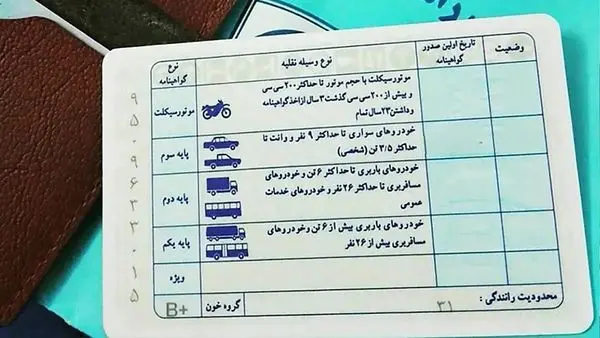 وضعیت
تاریخ اولین صدور
گواهینامه
نوع وسیله نقلیه
نوع
گواهینامه
موتورسیکلت با حجم موتور تا حداکثر ۲۰۰ سی سی
و بیش از ۲۰۰ سی سی گذشت ۳ سال از اخذ گواهینامه
و داشتن ۲۳ سال تمام
موتورسیکلت
خودروهای سواری تا حداکثر ۹ نفر و وانت تا
حداکثر ۳/۵ تن (شخصی)
پایه سوم
خودروهای باربری تا حداکثر ۶ تن و خودروهای
مسافربری تا حداکثر ۲۶ نفر و خودروهای خدمات
عمومی
پایه دوم
خودروهای باربری بیش از ۶ تن و خودروهای
مسافربری بیش از ۲۶ نفر
پایه یکم
ویژه
محدودیت رانندگی : ۳۱
گروه خون B+
۹۵۰۹۶۳۳۰۱۵